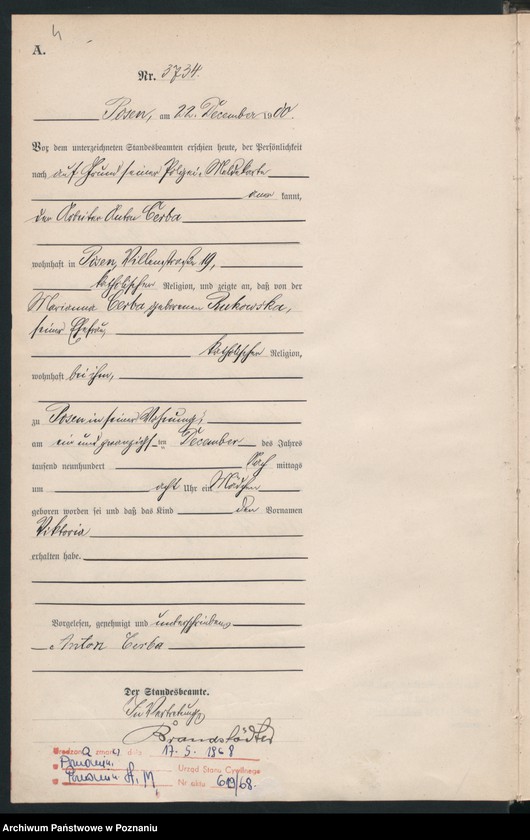 A.
Nr. 3734.
Posen, am 22. December 1900.
Vor dem unterzeichneten Standesbeamten erschien heute, der Persönlichkeit
nach auf Grund seiner Polizei-Meldekarte
aner kannt,
der Arbeiter Anton Cerba
wohnhaft in Posen, Villenstraße 19,
katholischer Religion, und zeigte an, daß von der
Marianna Cerba geborenen Rukowska,
seiner Ehefrau,
katholischer Religion,
wohnhaft bei ihm,
zu Posen in seiner Wohnung,
am ein und zwanzigsten December des Jahres
tausend neunhundert Nach mittags
um acht Uhr ein Mädchen
geboren worden sei und daß das Kind den Vornamen
Viktoria
erhalten habe.
Vorgelesen, genehmigt und unterschrieben
Anton Cerba
Der Standesbeamte.
In Vertretung
Brandstädter
zmarł dnia 17. 5. 1968
Urząd Stanu Cywilnego
Poznań
Nr aktu /68.
Archiwum Państwowe w Poznaniu